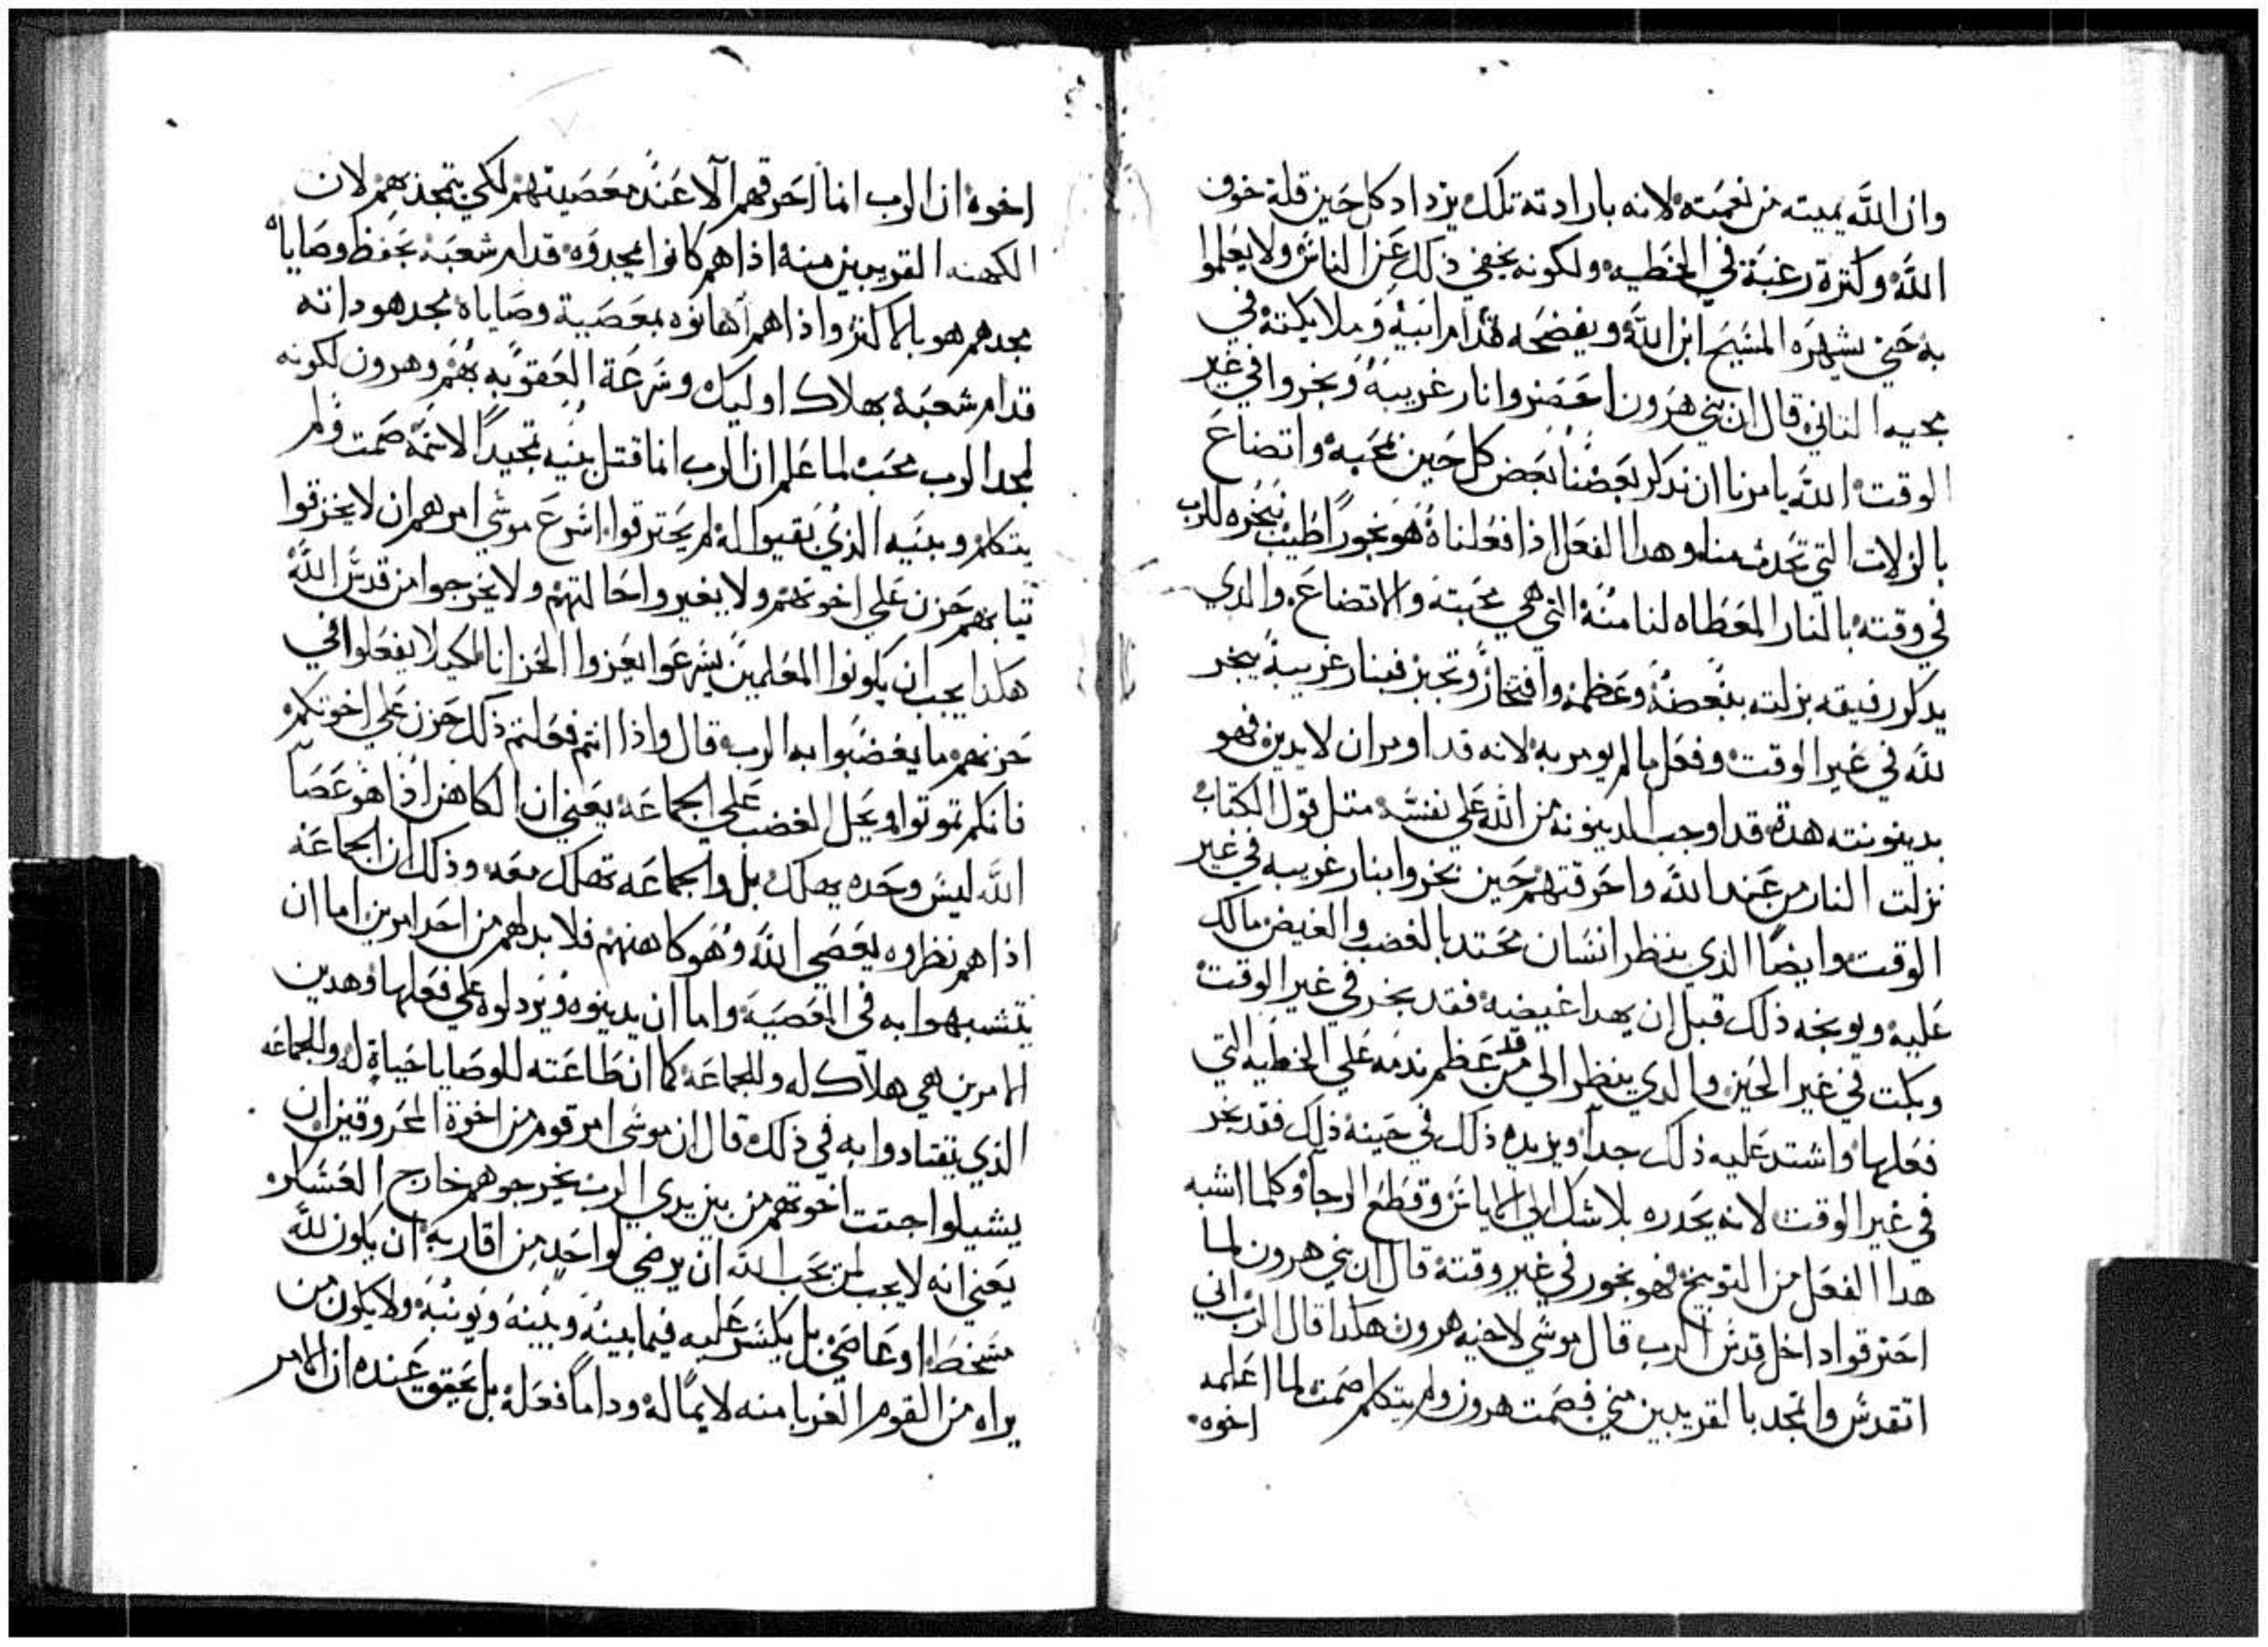 وان الله يميته من نعمته لانه بارادته تلك يزداد كل حين قلة خوف
الله وكثرة رغبة في الخطيه ولكونه يخفي ذلك عن الناس ولا يعلموا
به حتي يشهره المسيح ابن الله ويفضحه قدام ابيه وملايكته في
مجيه الثاني قال ان بني هرون احضروا نار غريبة وبخروا في غير
الوقت الله يامرنا ان نذكر بعضنا بعض كل حين بمحبه واتضاع
بالزلات التي تحدث منا وهدا الفعل اذا فعلناه هو بخورًا طيب نبخره للرب
في وقته بالنار المعطاه لنا منه التي هي محبته والاتضاع والدي
يدكر رفيقه بزلته ببغضه وعظمة وافتخار وتجبر فبنار غريبة يبخر
لله في غير الوقت وفعل ما لم يومر به لانه قد اومر ان لا يدين فهو
بدينونته هده قد اوجب الدينونه من الله علي نفسه متل قول الكتاب
نزلت النار من عند الله واحرقتهم حين بخروا بنار غريبه في غير
الوقت وايضًا الذي ينظر انسان محتد بالغضب والغيض مالك
عليه ويوبخه ذلك قبل ان يهدا غيضه فقد بخر في غير الوقت
وبكت في غير الحين والدي ينظر الي من قد عظم ندمه علي الخطيه التي
فعلها واشتد عليه ذلك جدًا ويزيده ذلك في حينه ذلك فقد بخر
في غير الوقت لانه يحدره بلا شك الي الاياس وقطع الرجا وكلما اشبه
هدا الفعل من التوبيخ فهو بخور في غير وقته قال ان بني هرون لما
احترقوا داخل قدس الرب قال موسي لاخيه هرون هكدا قال الرب اني
اتقدس واتمجد بالقريبين مني فصمت هرون ولم يتكلم صمت لما اعلمه
اخوه
اخوه ان الرب انما احرقهم الا عند معصيتهم لكي يتمجد بهم لان
الكهنه القريبين منه اذا هم كانوا يمجدوه قدام شعبه بحفظ وصاياه
مجدهم هو بالاكثر واذا هم اهانوه بمعصية وصاياه مجد هو داته
قدام شعبه بهلاك اوليك وسرعة العقوبه بهم وهرون لكونه
لمجد الرب محب لما علم ان الرب انما قتل بنيه تمجيدًا لاسمه صمت ولم
يتكلم وبنيه الذي بقيوا له لم يحترقوا اسرع موسي امرهم ان لا يخرقوا
تيابهم حزن علي اخوتهم ولا يغيروا حالتهم ولا يخرجوا من قدس الله
هكدا يجب ان يكونوا المعلمين يسرعوا يعزوا الحزانا لكيلا يفعلوا في
حزنهم ما يغضبوا به الرب قال واذا انتم فعلتم ذلك حزن علي اخوتكم
فانكم تموتوا ويحل الغضب علي الجماعه يعني ان الكاهن اذا هو عصا
الله ليس وحده يهلك بل والجماعه تهلك معه وذلك ان الجماعه
اذا هم نظروه يعصي الله وهو كاهنهم فلا بد لهم من احد امرين اما ان
يتشبهوا به في المعصيه واما ان يدينوه ويزدلوه علي فعلها وهدين
الامرين هي هلاك له وللجماعه كما ان طاعته للوصايا حياة له وللجماعه
الذي يقتادوا به في ذلك قال ان موسي امر قوم من اخوة المحروقين ان
يشيلوا جتت اخوتهم من بين يدي الرب يخرجوهم خارج العسكر
يعني انه لا يجب لمن يحب الله ان يرضي لواحد من اقاربه ان يكون لله
مسخطا او عاصي بل يكسر عليه فيما بينه وبينه ويونبه ولا يكون من
يراه من القوم الغربا منه لايمًا له وداماً فعله بل يحقق عنده ان الامر